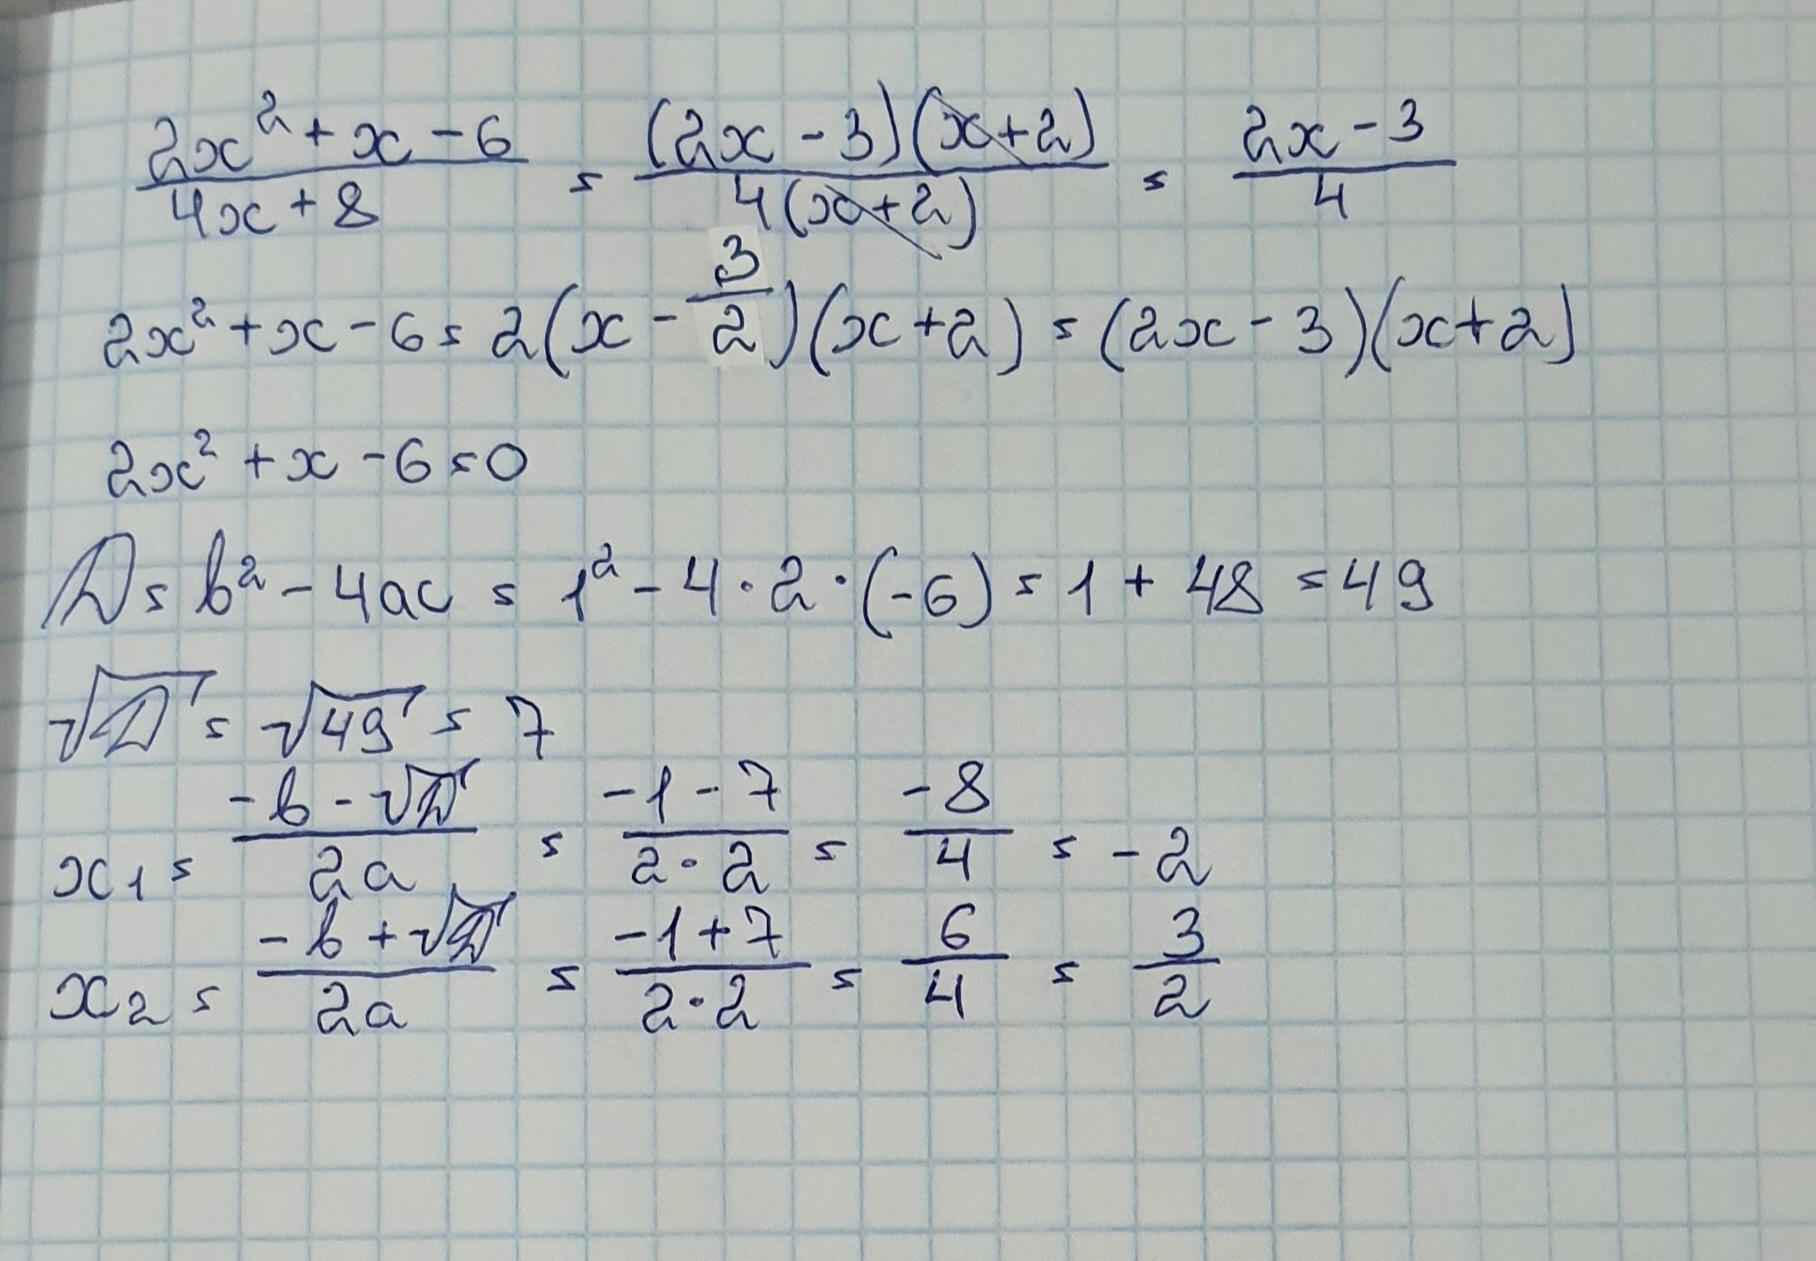 (2x² + x - 6)/(4x + 8) = ((2x - 3)(x + 2))/(4(x + 2)) = (2x - 3)/4
2x² + x - 6 = 2(x - 3/2)(x + 2) = (2x - 3)(x + 2)
2x² + x - 6 = 0
D = b² - 4ac = 1² - 4 · 2 · (-6) = 1 + 48 = 49
√D = √49 = 7
x₁ = (-b - √D)/(2a) = (-1 - 7)/(2 · 2) = -8/4 = -2
x₂ = (-b + √D)/(2a) = (-1 + 7)/(2 · 2) = 6/4 = 3/2